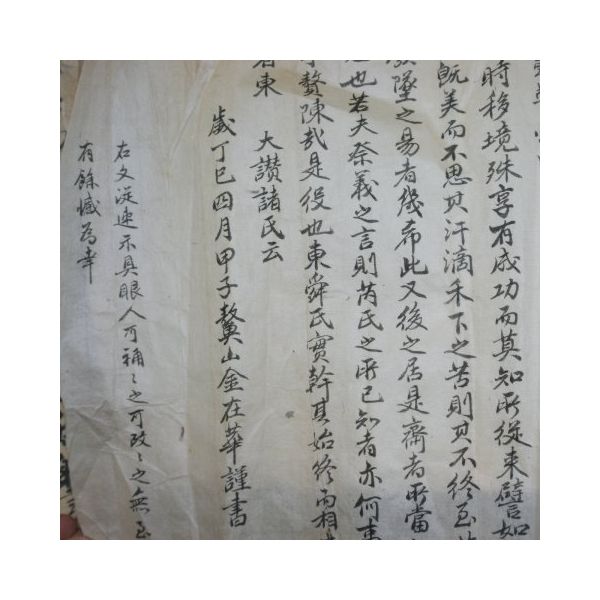 時移境殊享有成功而莫知所從來譬如
旣美而不思其汗滴禾下之苦則其不終至
墜之易者幾希此又後之居是齋者所當
也若夫祭義之言則芮氏之所已知者亦何
贅陳哉是役也東舜氏實幹其始終而相
東 大讚諸氏云
歲丁巳四月甲子鰲山金在華謹書
右文淀速示具眼人可補之補之可改之改之無至
有餘憾為幸